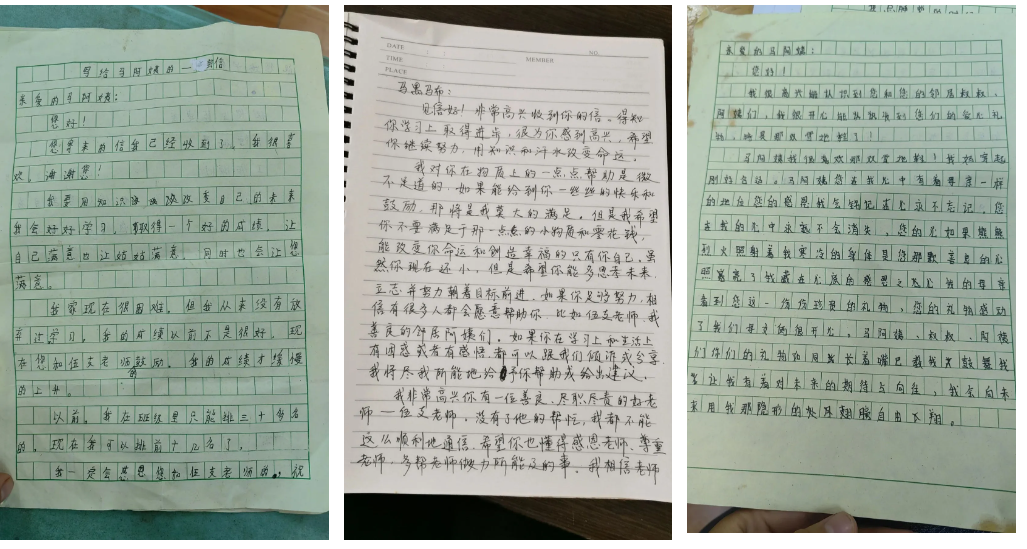 写给马阿姨的一封信
亲爱的马阿姨:
您好!
您寄来的信我已经收到了。我很喜
欢。谢谢您!
我要用知识改变自己的未来
我会好好学习,取得一个好的成绩。让
自己满意也让妈妈满意。同时也会让您
满意。
我家现在很困难。但我从来没有放
弃过学习。我的成绩以前不是很好,现
在您和伍支老师鼓励。我的成绩才慢慢
的上升。
以前。我在班级里只能排三十多名
的。现在我可以排前十几名了。
我一定会感恩您和伍支老师的。祝
DATE
NO.
TIME
MEMBER
PLACE
马黑马布:
见信好!非常高兴收到你的信。得知
你学习上取得进步,很为你感到高兴,希望
你继续努力,用知识和汗水改变命运。
我对你在物质上的一点点帮助是微
不足道的,如果能给到你一些些的快乐和
鼓励,那将是我莫大的满足。但是我希望
你不要满足于那一点点的小物质和零花钱,
能改变你命运和创造幸福的只有你自己。虽
然你现在还小,但是希望你能多思考未来,
立志并努力朝着目标前进。如果你足够努力,相
信有很多人都会愿意帮助你,比如伍支老师、我
善良的邻居阿姨们。如果你在学习上和生活上
有困惑或者有感悟,都可以跟我们倾诉或分享,
我将尽我所能地给予你帮助或给出建议。
我非常高兴你有一位善良、尽职尽责的好老
师——伍支老师。没有了他的帮忙,我都不能
这么顺利地通信。希望你也懂得感恩老师、尊重
老师,多帮老师做力所能及的事。我相信老师
亲爱的马阿姨:
您好!
我很高兴能认识到您和您的邻居叔叔、
阿姨们,我很开心能收到您们的爱心礼
物,
马阿姨我很喜欢那双雪地鞋!我妈穿起
刚好合适。马阿姨您在我心中有着母亲一样
的地位您的感恩我会铭记在心永不忘记,您
在我的心中永远不会消失,您的心如果
烈火照射着我寒冷的身体是您那颗善良的心
照亮了我藏在心底的感恩之心我的母亲
看到您这一份份珍贵的礼物,您的礼物感动
了我们母女俩很开心。马阿姨、叔叔、阿姨
们你们的礼物如同张长着嘴巴
让我有着对未来的期待与向往,我会向未
来用我那隐形的翅膀自由飞翔。